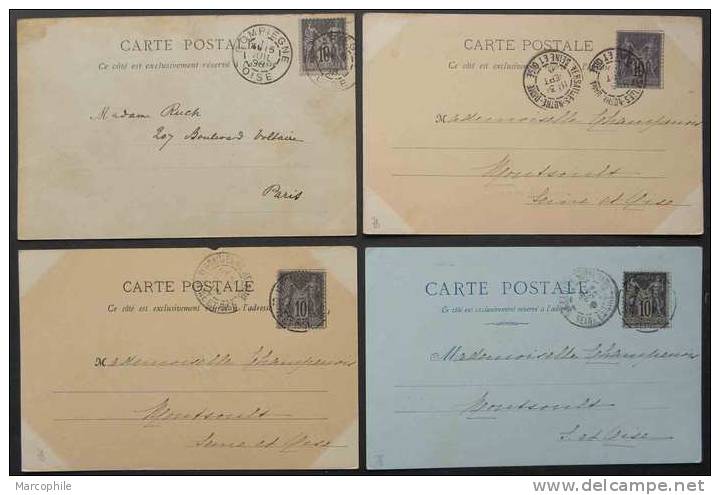 CARTE POSTALE
Ce côté est exclusivement réservé
COMPIEGNE
OISE
10
Madame Ruch
207 Boulevard Voltaire
Paris
CARTE POSTALE
Ce côté est exclusivement réservé
VERSAILLES-NOTRE-DAME
SEINE ET OISE
10
Mademoiselle Champenon
Montsoult
Seine et Oise
CARTE POSTALE
Ce côté est exclusivement réservé à l'adresse
10
Mademoiselle Champenon
Montsoult
Seine et Oise
CARTE POSTALE
Ce côté est exclusivement réservé à l'adresse
10
Mademoiselle Champenon
Montsoult
S. et Oise
Marcophile
delcampe.net